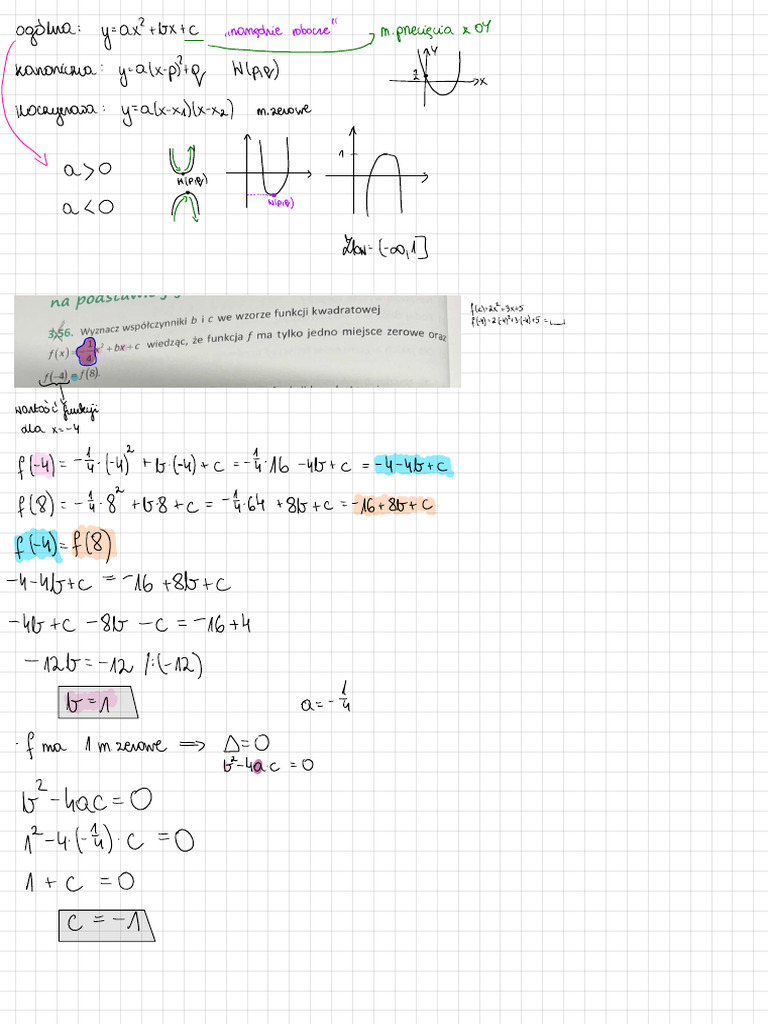 ogólna: y=ax²+bx+c „narzędzie robocze" m. przecięcia z OY
kanoniczna: y=a(x-p)²+q W(p,q)
iloczynowa: y=a(x-x1)(x-x2) m. zerowe
y
2
x
a>0
W(p,q)
a<0
W(p,q)
1
Zbw=(-∞,1]
na podstawie
3.56. Wyznacz współczynniki b i c we wzorze funkcji kwadratowej
f(x) = -1/4x² + bx + c wiedząc, że funkcja f ma tylko jedno miejsce zerowe oraz
f(-4) = f(8).
f(x)=2x²+3x+5
f(-4)=2·(-4)²+3·(-4)+5=
wartość funkcji
dla x=-4
f(-4) = -1/4·(-4)² + b·(-4) + c = -1/4·16 -4b+c = -4-4b+c
f(8) = -1/4·8² + b·8 + c = -1/4·64 + 8b+c = -16+8b+c
f(-4) = f(8)
-4-4b+c = -16+8b+c
-4b+c-8b-c = -16+4
-12b = -12 /:(-12)
b=1
a=-1/4
· f ma 1 m. zerowe ⟹ Δ=0
b²-4a·c = 0
b²-4ac=0
1²-4·(-1/4)·c = 0
1 + c = 0
c = -1